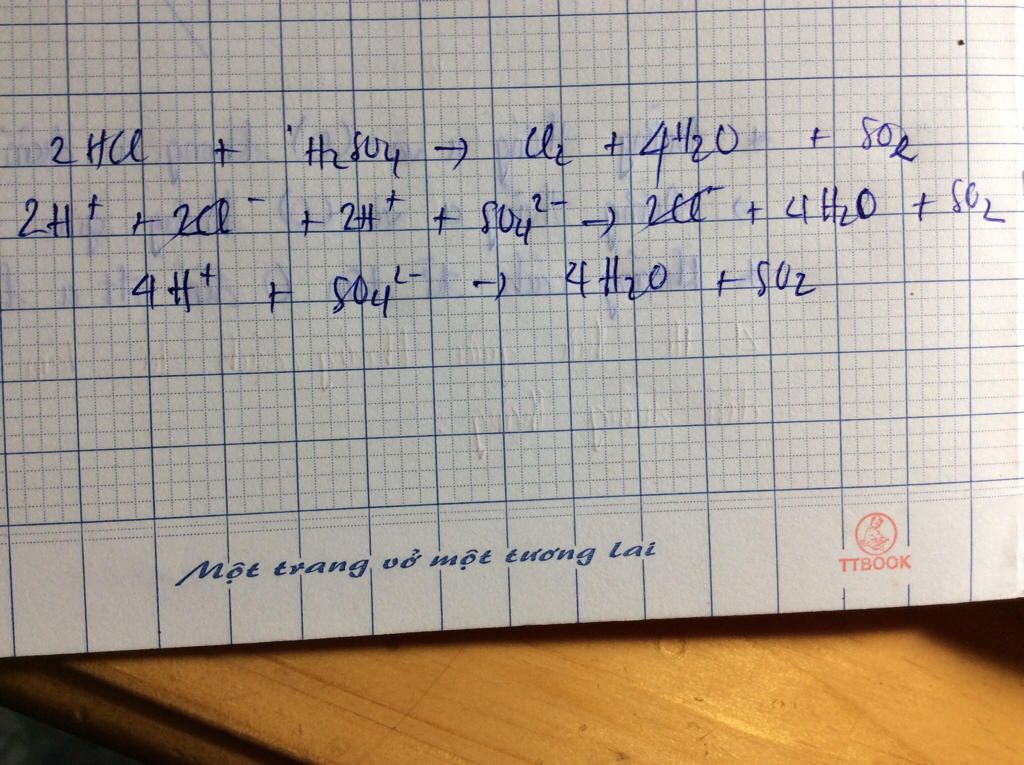 2HCl + H₂SO₄ → Cl₂ + 4H₂O + SO₂
2H⁺ + 2Cl⁻ + 2H⁺ + SO₄²⁻ → 2Cl⁻ + 4H₂O + SO₂
4H⁺ + SO₄²⁻ → 4H₂O + SO₂
Một trang vở một tương lai
TTBOOK